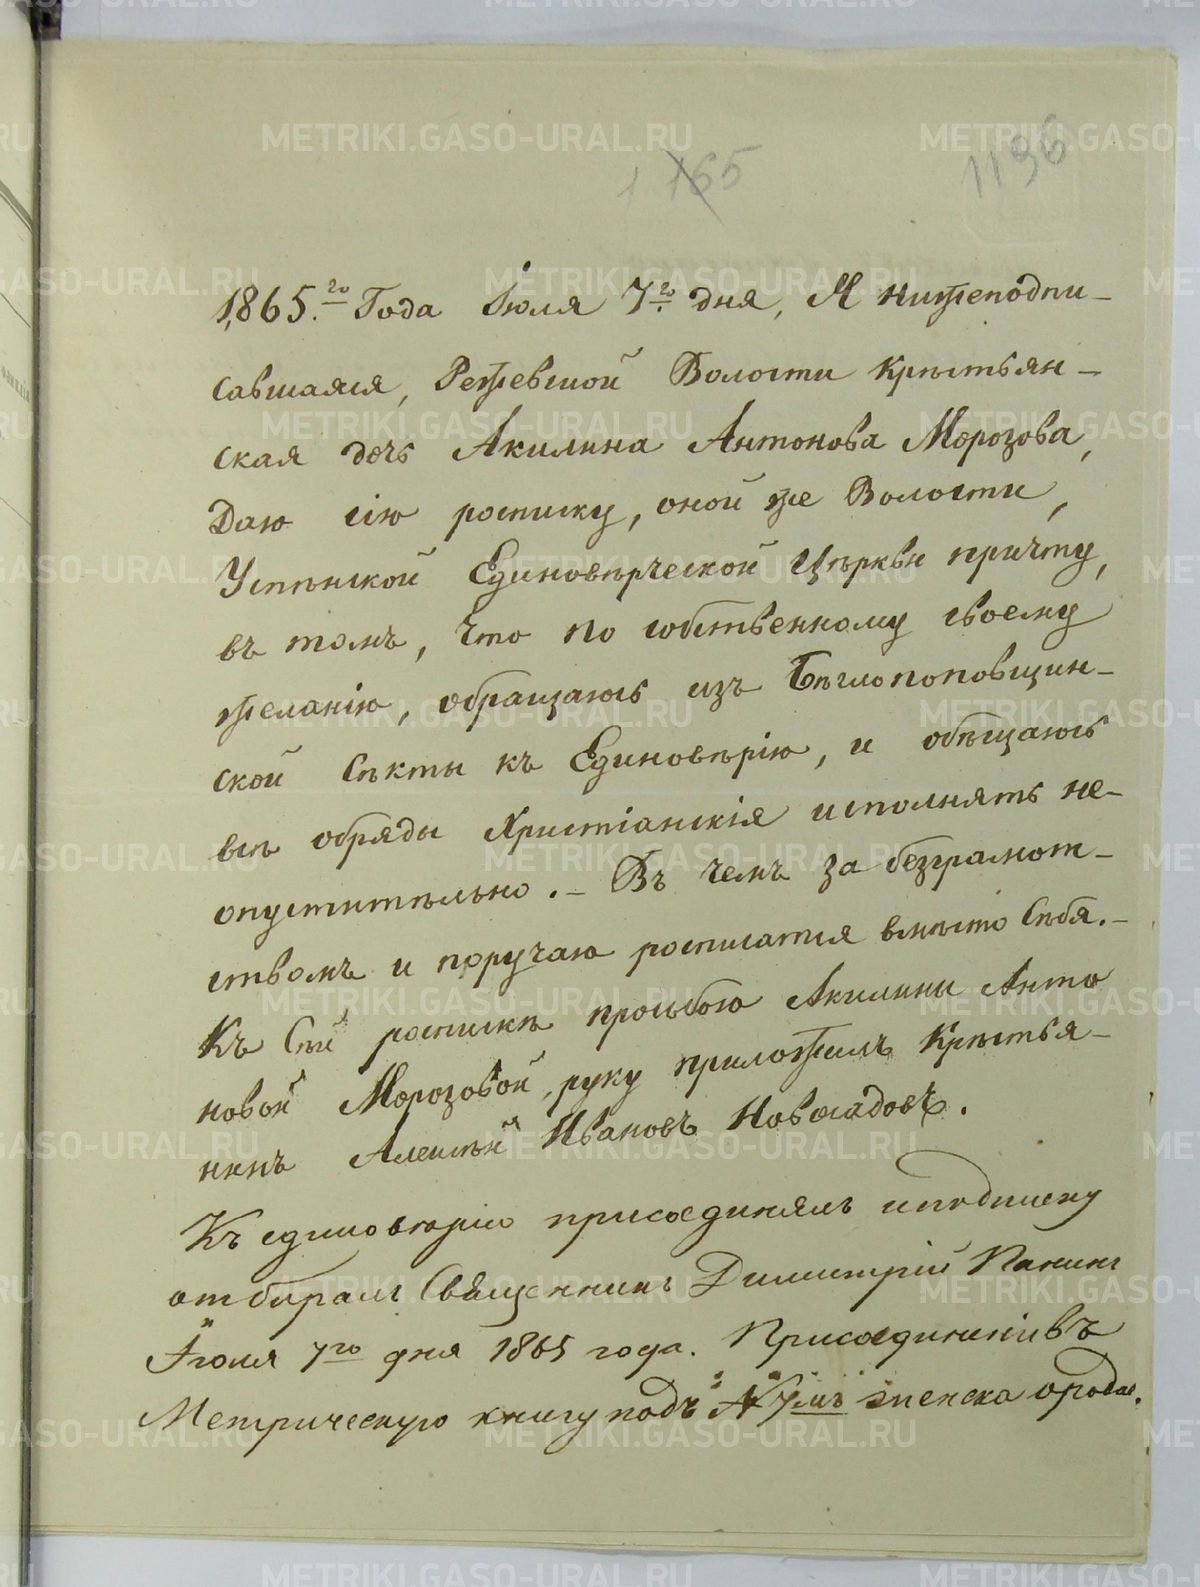 1165
1196
1865.го Года Іюля 7го дня, Я нижеподпи-
савшаяся, Режевской Волости Крестьян-
ская дочь Акилина Антонова Морозова,
Даю сію росписку, оной же Волости,
Успенской Единоверческой Церкви причту,
въ томъ, что по собственному своему
желанію, обращаюсь изъ Беглопоповщин-
ской Секты къ Единоверію, и обещаюсь
все обряды Христіанскія исполнять не-
опустительно. – Въ чемъ за безграмот-
ствомъ и поручаю росписатся вместо Себя. –
Къ Сей росписке прозьбою Акилины Анто
новой Морозовой, руку приложилъ Крестья-
нинъ Алексей Ивановъ Новосадовъ.
Къ единоверію присоединялъ и подписку
отбиралъ Священникъ Димитрій Панинъ
Іюля 7го дня 1865 года. Присоединеніе въ
Метрическую книгу подъ № 7мъ женска
METRIKI.GASO-URAL.RU